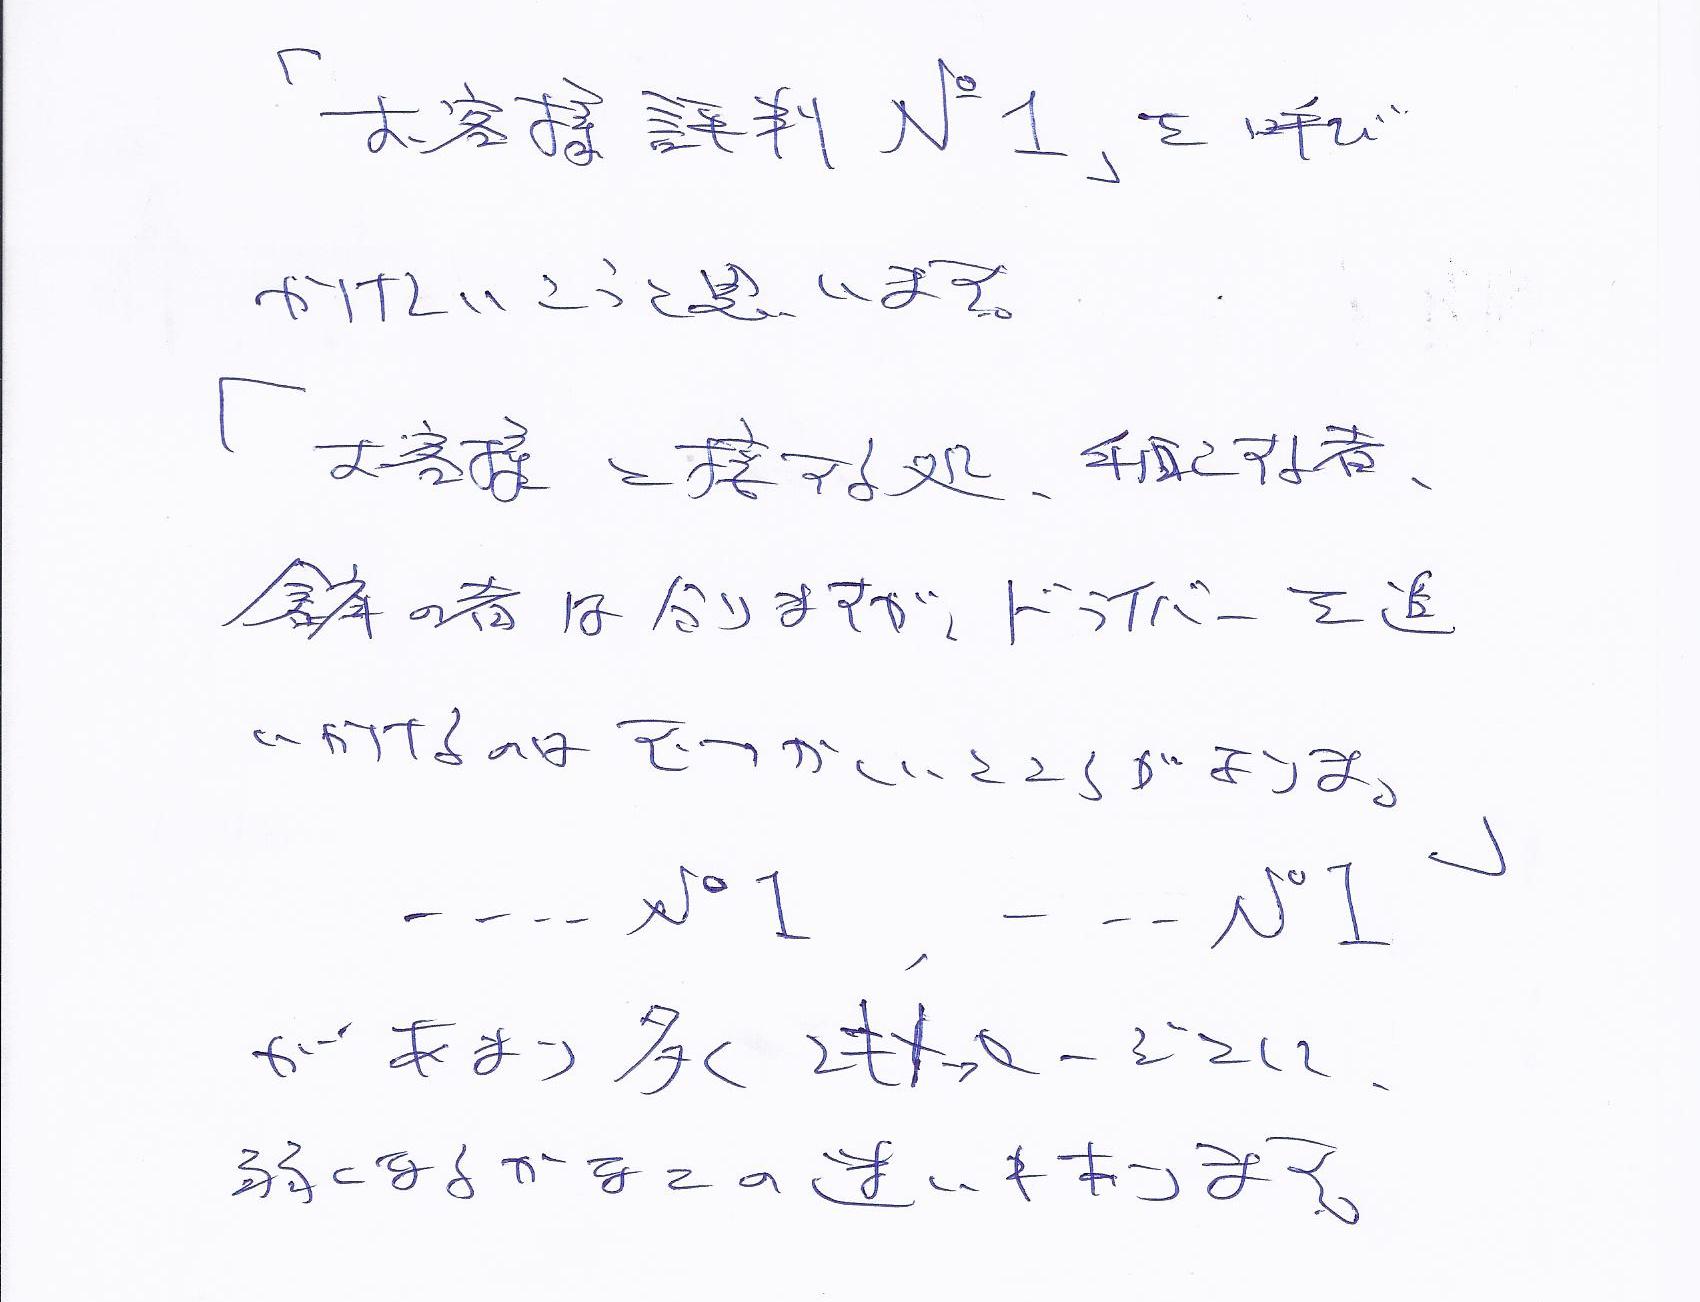 「お客様評判 No 1」を呼び
かけていこうと思います。
「お客様と接する処、手段とする者、
の者は分りますが、ドライバーを追
いかけるのはむつかしいところがあります。
---- No 1 --- No 1」
があまり多く
弱くなるかなとの迷いもあります。